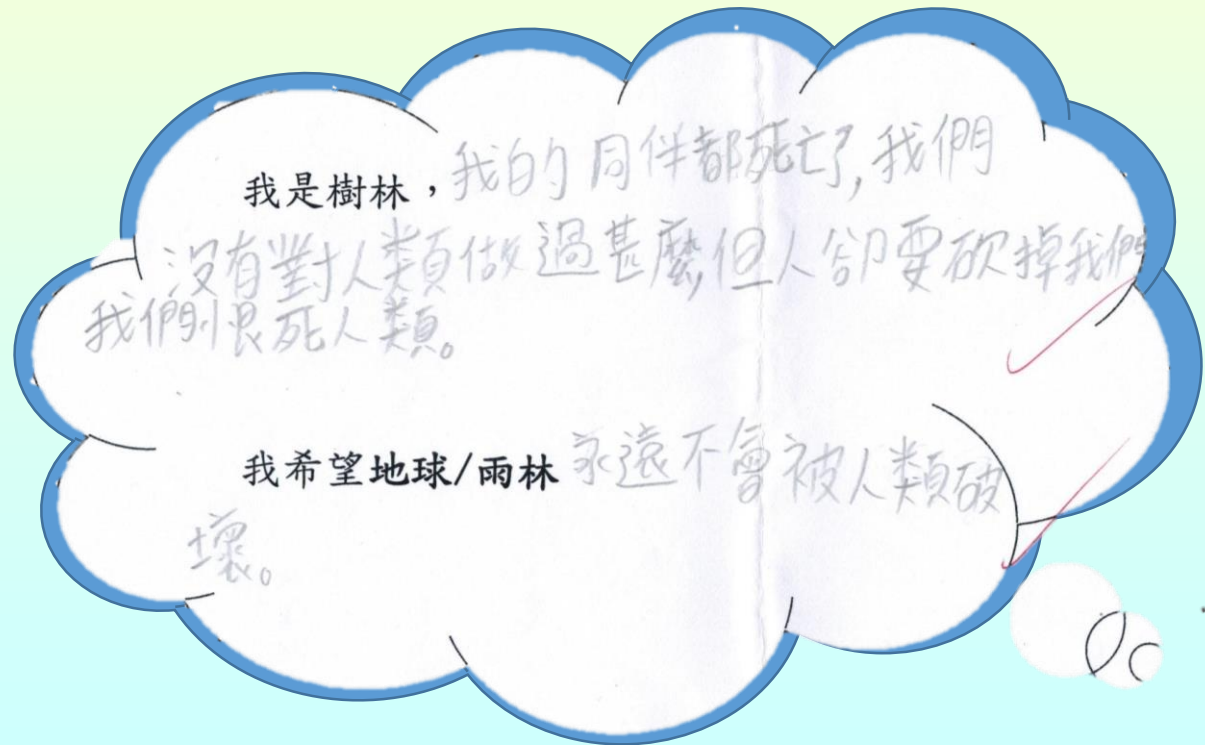 我是樹林，我的同伴都死亡了,我們
沒有對人類做過甚麼,但人卻要砍掉我們
我們恨死人類。
我希望地球/雨林永遠不會被人類破
壞。